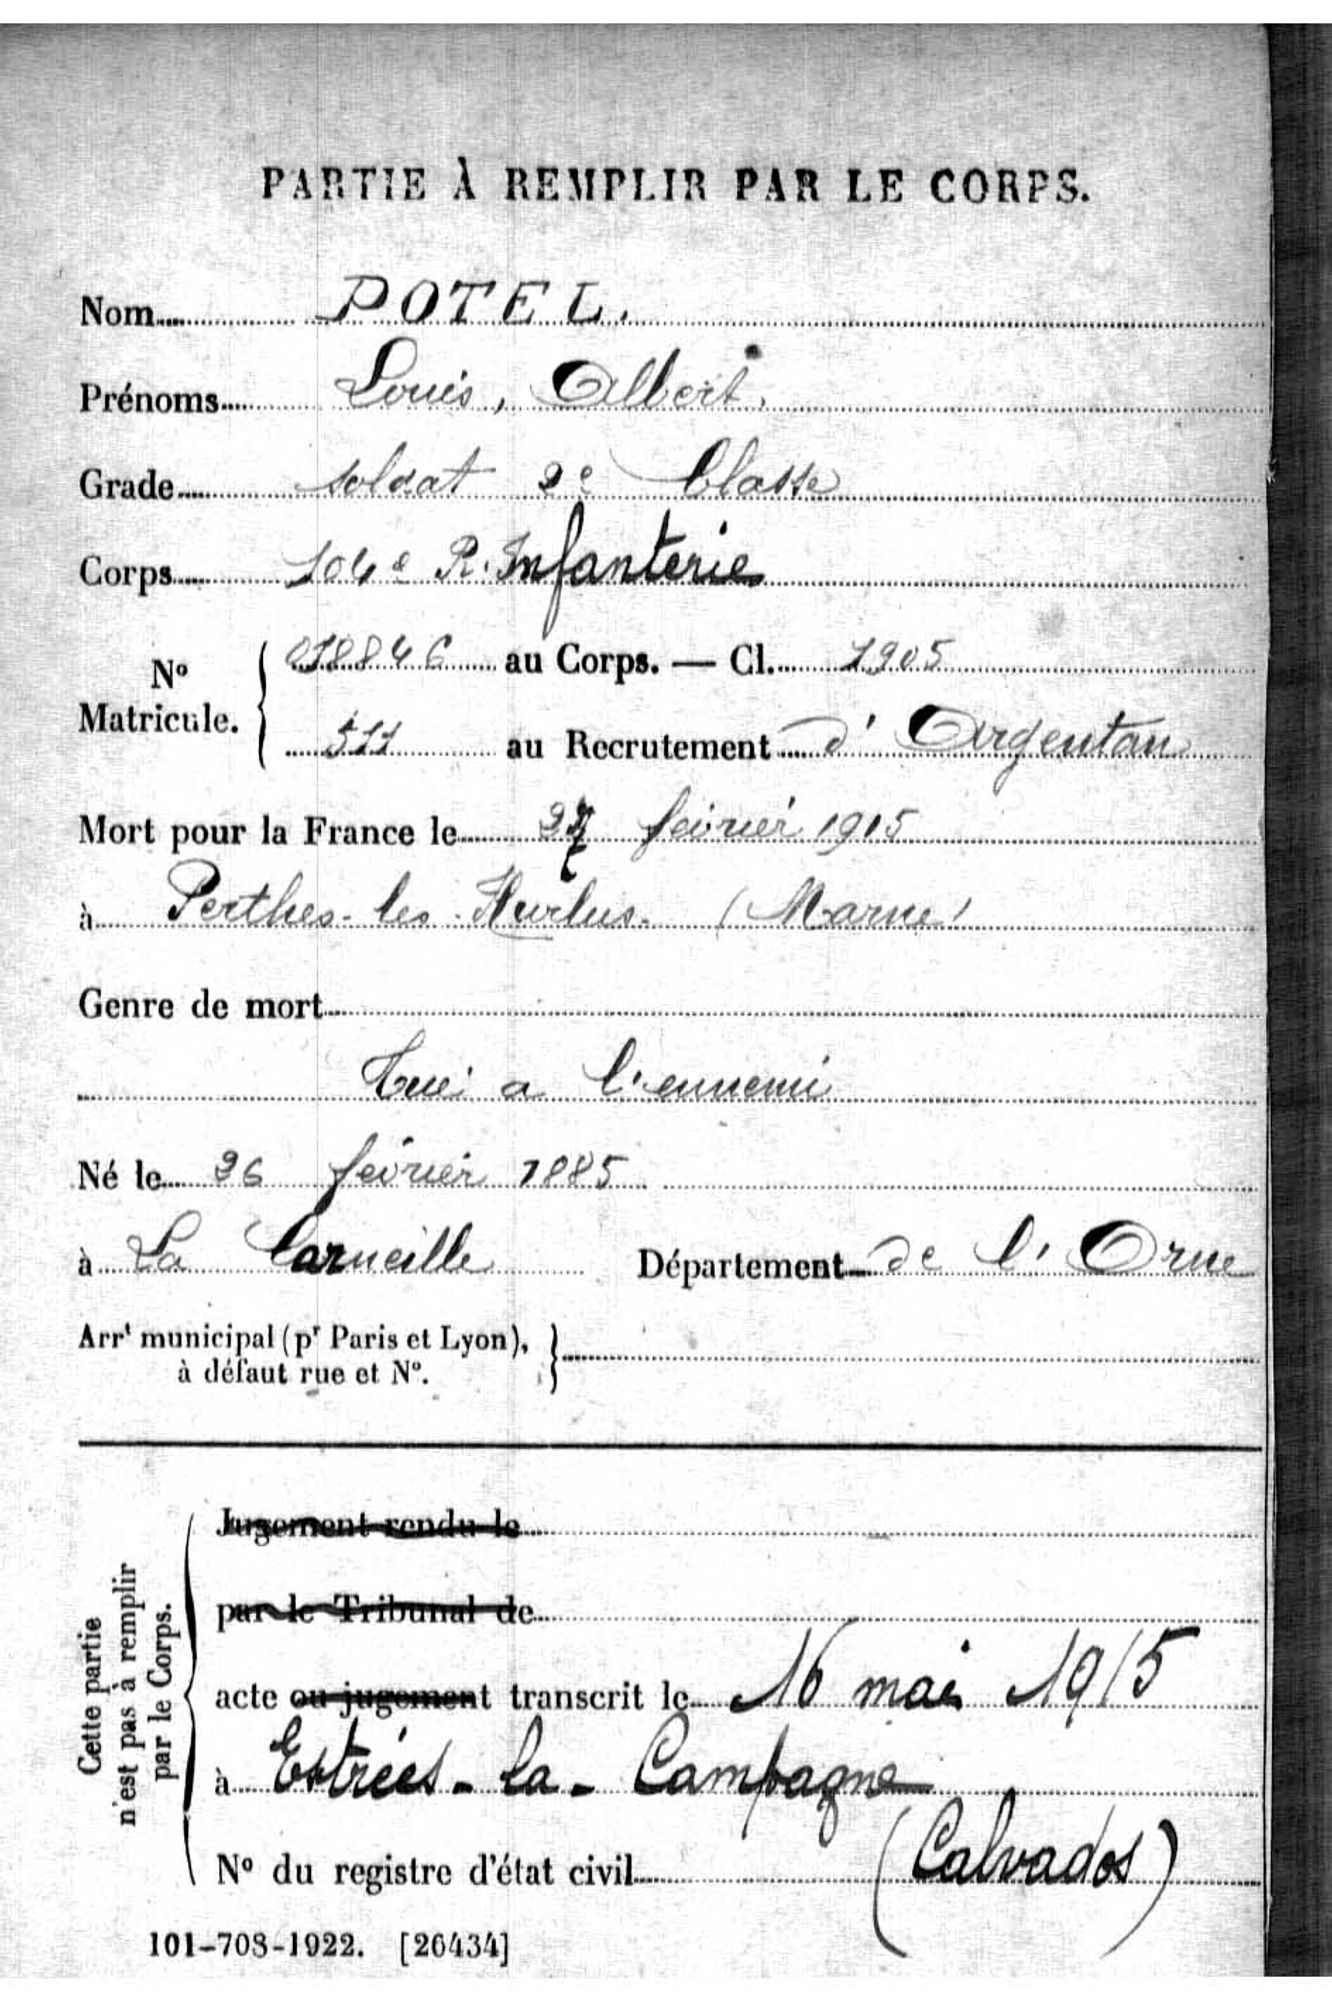 PARTIE À REMPLIR PAR LE CORPS.
Nom POTEL.
Prénoms Louis, Albert.
Grade soldat 2e Classe
Corps 104e R. Infanterie
No Matricule. { 018846 au Corps. — Cl. 1905
511 au Recrutement d'Argentan
Mort pour la France le 27 février 1915
à Perthes-les-Hurlus. (Marne)
Genre de mort
Tué a l'ennemi
Né le 26 février 1885
à La Carneille Département de l'Orne
Arrt municipal (pr Paris et Lyon),
à défaut rue et No.
Cette partie
n'est pas à remplir
par le Corps.
Jugement rendu le
par le Tribunal de
acte ou jugement transcrit le 16 mai 1915
à Estrées-la-Campagne
No du registre d'état civil (Calvados)
101-708-1922. [26434]